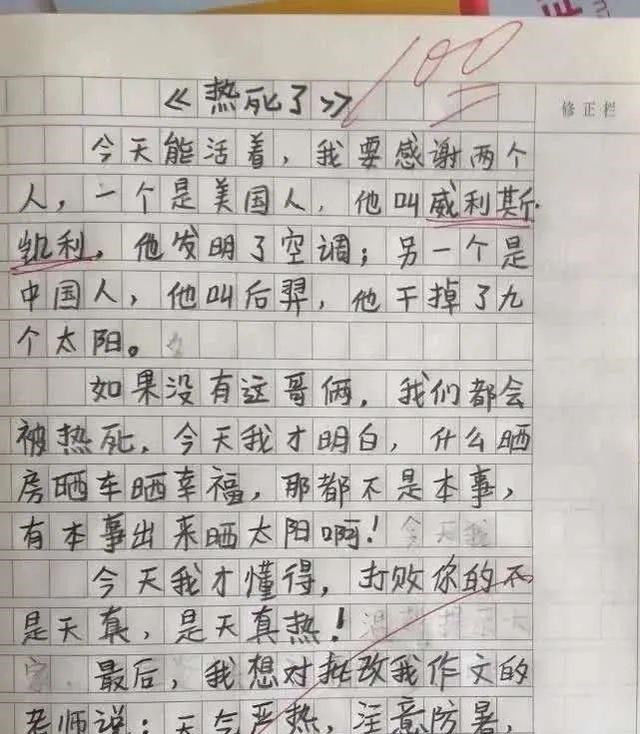 100
修正栏
《热死了》
今天能活着，我要感谢两个
人，一个是美国人，他叫威利斯·
凯利，他发明了空调；另一个是
中国人，他叫后羿，他干掉了九
个太阳。
如果没有这哥俩，我们都会
被热死，今天我才明白，什么晒
房晒车晒幸福，那都不是本事，
有本事出来晒太阳啊！
今天我才懂得，打败你的不
是天真，是天真热！
最后，我想对批改我作文的
老师说：天气严热，注意防暑，